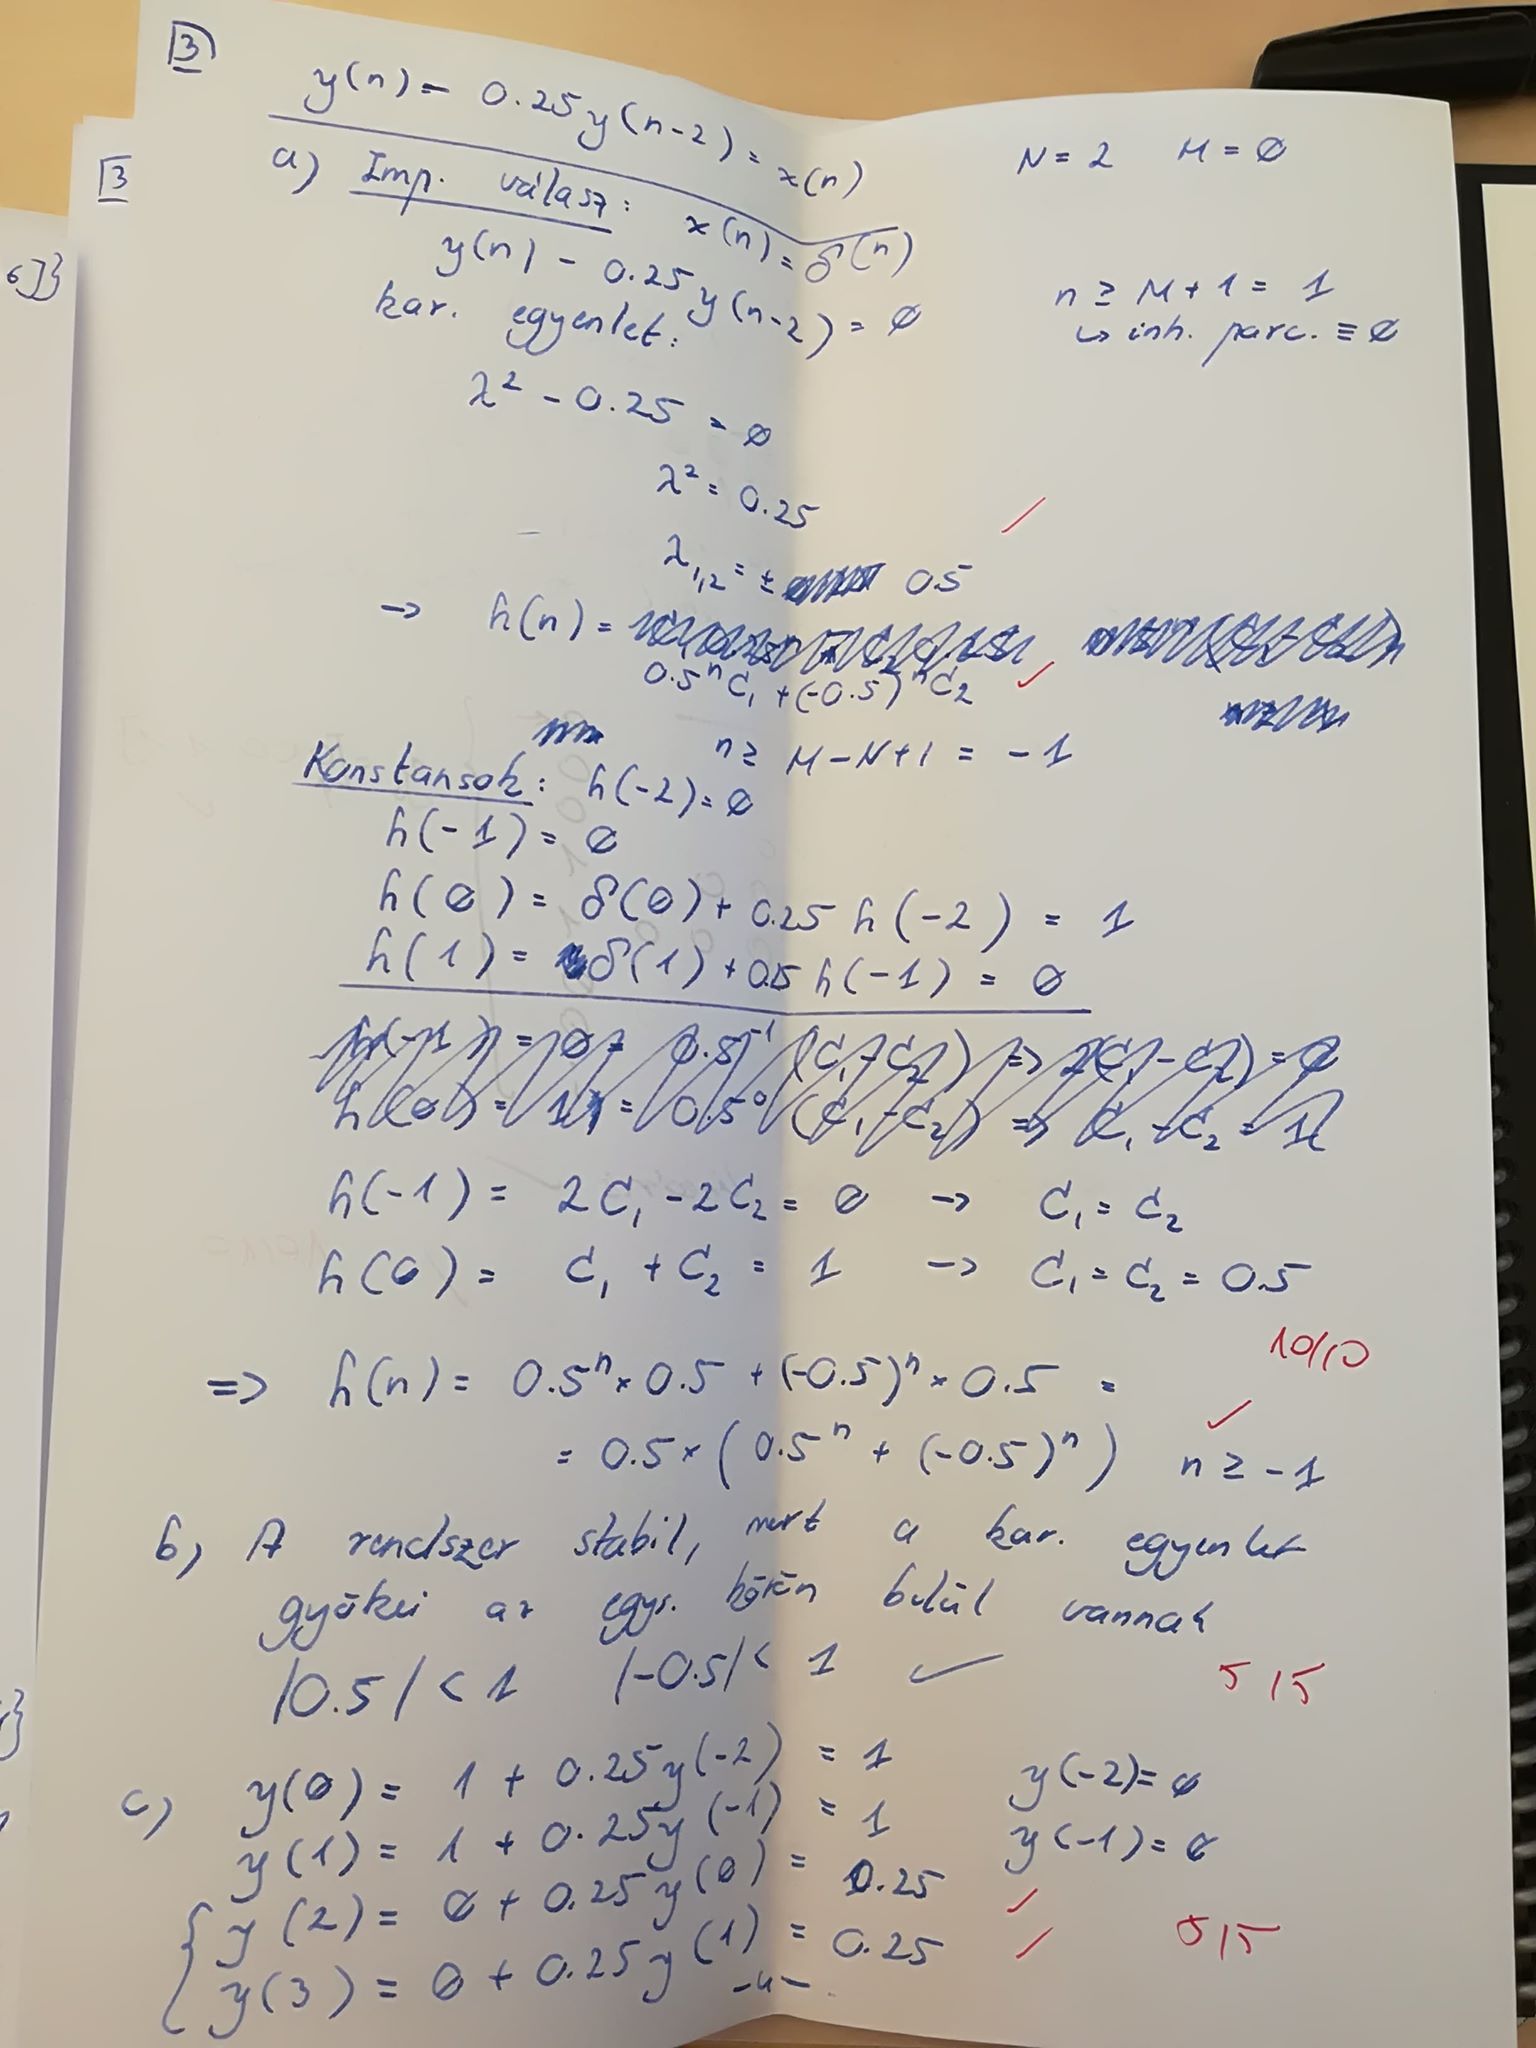 3
y(n) - 0.25y(n-2) = x(n)
N = 2 M = ∅
3
a) Imp. válasz: x(n) = δ(n)
y(n) - 0.25y(n-2) = ∅
n ≥ M+1 = 1
kar. egyenlet:
↳ inh. parc. ≡ ∅
6]}
λ² - 0.25 = ∅
λ² = 0.25
λ1,2 = ± 0.5
→ h(n) =
0.5ⁿC₁ + (-0.5)ⁿC₂
n ≥ M-N+1 = -1
Konstansok: h(-2) = ∅
h(-1) = ∅
h(∅) = δ(∅) + 0.25 h(-2) = 1
h(1) = δ(1) + 0.25 h(-1) = ∅
h(-1) = ∅ = 0.5⁻¹ (C₁-C₂) ⇒ 2(C₁-C₂) = ∅
h(-1) = 2C₁ - 2C₂ = ∅ → C₁ = C₂
h(0) = C₁ + C₂ = 1 → C₁ = C₂ = 0.5
10/10
⇒ h(n) = 0.5ⁿ × 0.5 + (-0.5)ⁿ × 0.5 =
= 0.5 × (0.5ⁿ + (-0.5)ⁿ) n ≥ -1
b) A rendszer stabil, mert a kar. egyenlet
gyökei az egys. körön belül vannak
|0.5| < 1 |-0.5| < 1 ✓
5/5
c) y(∅) = 1 + 0.25y(-2) = 1 y(-2) = ∅
y(1) = 1 + 0.25y(-1) = 1 y(-1) = ∅
y(2) = ∅ + 0.25y(∅) = 0.25
y(3) = ∅ + 0.25y(1) = 0.25
5/5
-"-